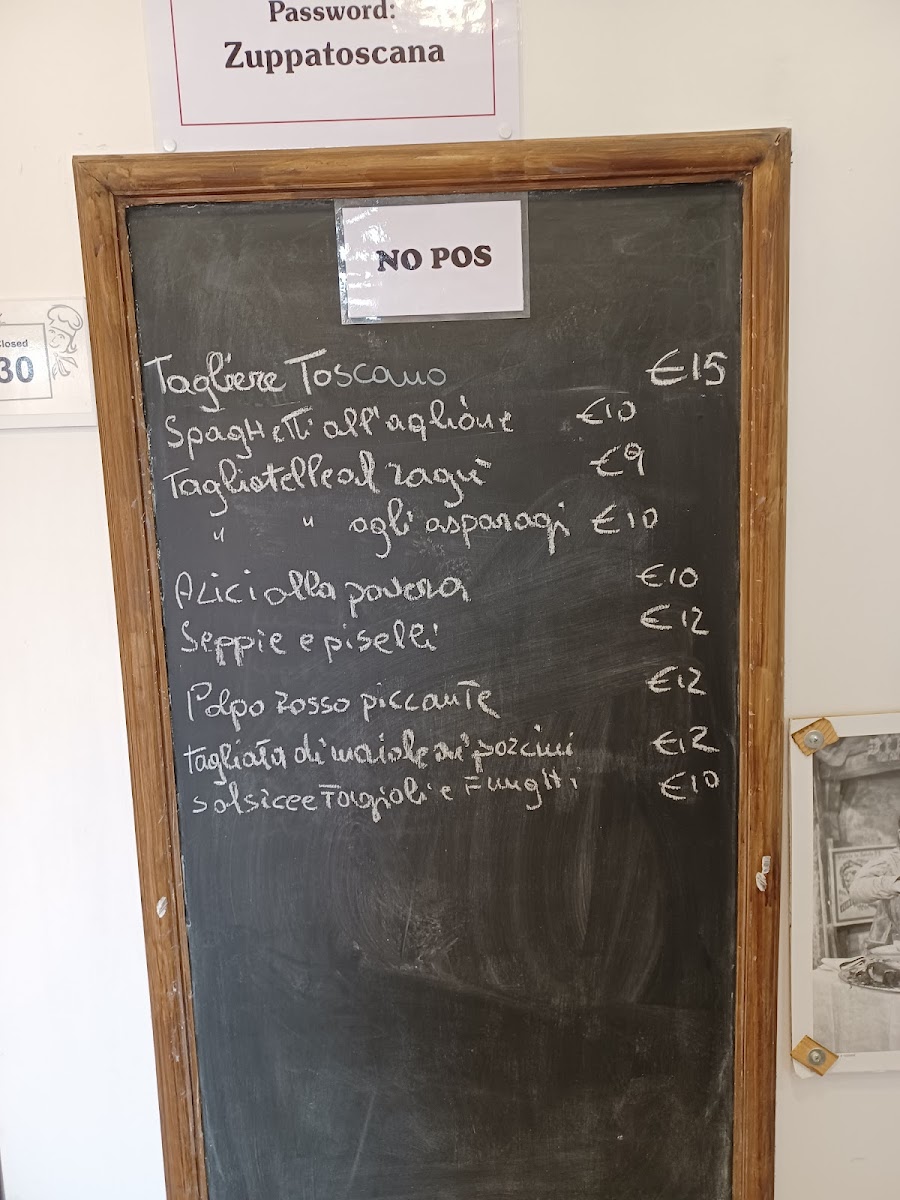 Password:
Zuppatoscana
NO POS
Closed
30
Tagliere Toscano €15
Spaghetti all'aglione €10
Tagliatelle al ragù €9
" " agli asparagi €10
Alici alla povera €10
Seppie e piselli €12
Polpo rosso piccante €12
tagliata di maiale ai porcini €12
Salsicce e Fagioli e Funghi €10